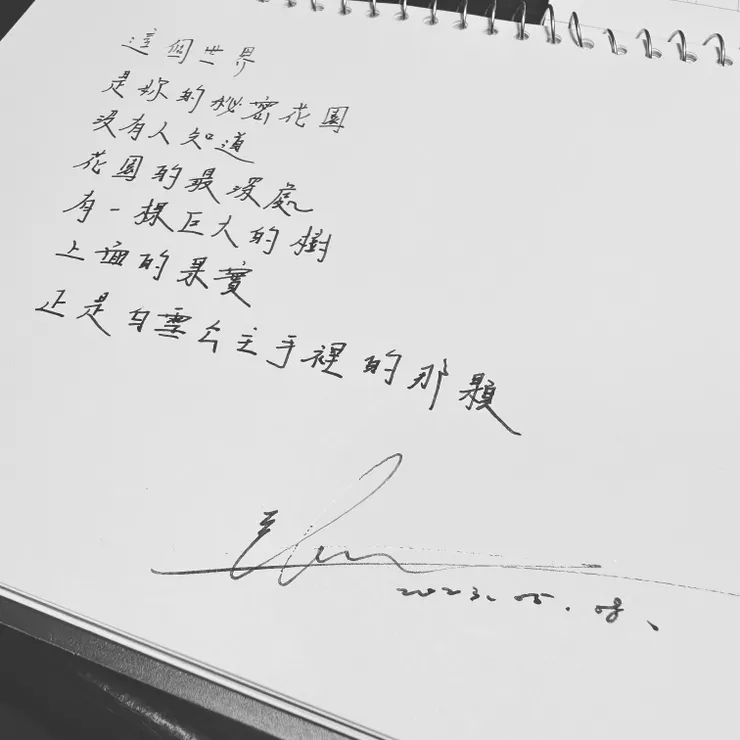 這個世界
是妳的秘密花園
沒有人知道
花園的最深處
有一棵巨大的樹
上面的果實
正是白雪公主手裡的那顆
2023.05.08.